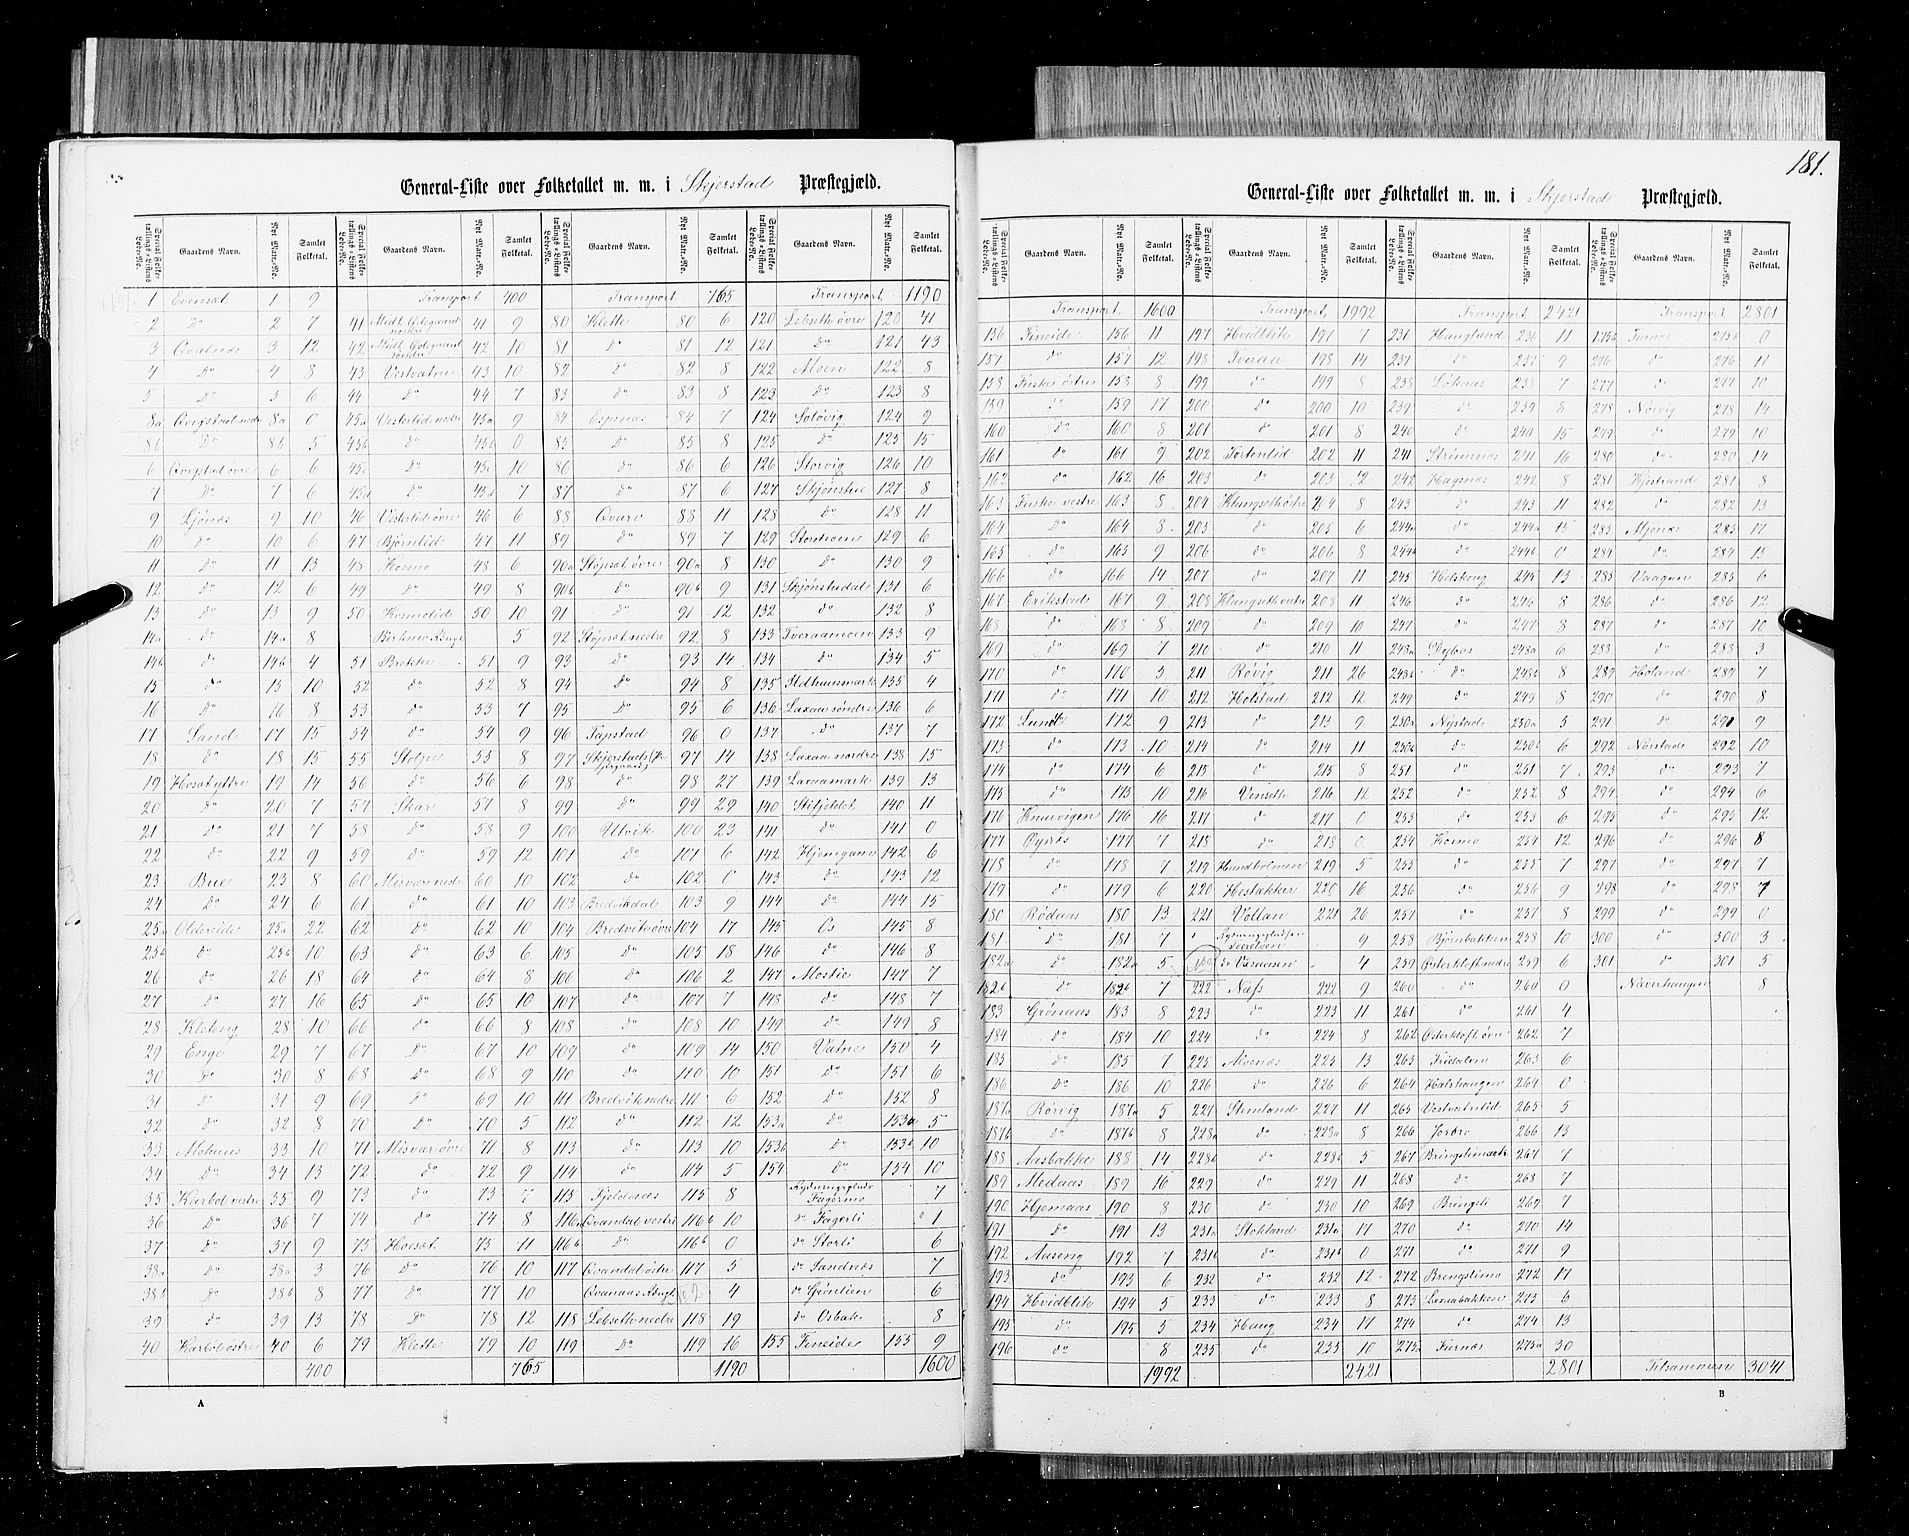 181.
General-Liste over Folketallet m. m. i Skjerstad Præstegjæld.
Special Folketællings-Listens Løbe-No. Gaardens Navn. Nyt Matr.-No. Samlet Folketal.
1 Evensæt 1 9
2 Do 2 7
3 3 12
4 Do 4 8
5 Do 5 6
8a 8a 0
8b Do 8b 5
6 6 6
7 Do 7 6
9 Ljønæs 9 10
10 Do 10 6
11 Do 11 13
12 Do 12 6
13 Do 13 9
14a Do 14a 8
14b Do 14b 4
15 Do 15 10
16 Do 16 8
17 Sand 17 15
18 Do 18 15
19 19 14
20 Do 20 7
21 Do 21 7
22 Do 22 9
23 Bue 23 8
24 Do 24 6
25a Oldereide 25a 22
25b Do 25b 10
26 Do 26 18
27 Do 27 16
28 Kleteng 28 10
29 Enge 29 7
30 Do 30 8
31 Do 31 9
32 Do 32 8
33 Mohuus 33 10
34 Do 34 13
35 Karbøl vestre 35 9
36 Do 36 7
37 Do 37 9
38a Do 38a 3
38b Do 38b 8
39 Do 39 13
40 Karbøl østre 40 6
400
Special Folketællings-Listens Løbe-No. Gaardens Navn. Nyt Matr.-No. Samlet Folketal.
Transport 400
41 41 9
42 42 10
43 Vestvatne 43 10
44 Do 44 7
45a Vesterlid nedre 45a 9
45b Do 45b 0
45c Do 45c 10
45d Do 45d 7
46 Vesterlid øvre 46 6
47 Bjørnlid 47 11
48 Kosmo 48 6
49 Do 49 8
50 Kosmolid 50 10
5
51 Brekke 51 9
52 Do 52 8
53 Do 53 7
54 Do 54 9
55 Stolpe 55 8
56 Do 56 6
57 Skar 57 8
58 Do 58 9
59 Do 59 12
60 Misvær nedre 60 10
61 Do 61 10
62 Do 62 10
63 Do 63 6
64 Do 64 8
65 Do 65 10
66 Do 66 8
67 Do 67 10
68 Do 68 9
69 Do 69 10
70 Do 70 5
71 Misvær øvre 71 8
72 Do 72 9
73 Do 73 7
74 Do 74 8
75 75 11
76 Do 76 10
77 Do 77 10
78 Do 78 12
79 Klette 79 10
765
Special Folketællings-Listens Løbe-No. Gaardens Navn. Nyt Matr.-No. Samlet Folketal.
Transport 765
80 Klette 80 6
81 Do 81 12
82 Do 82 8
83 Do 83 8
84 Espenes 84 7
85 Do 85 8
86 Do 86 6
87 Do 87 6
88 Qvarv 88 11
89 Do 89 7
90a Støpset øvre 90a 8
90b Do 90b 9
91 Do 91 12
92 Støpset nedre 92 8
93 Do 93 14
94 Do 94 8
95 Do 95 6
96 Tapstad 96 0
97 97 14
98 Do 98 27
99 Do 99 29
100 Utvik 100 23
101 Do 101 6
102 Do 102 0
103 Bredvikdal 103 9
104 Bredvik øvre 104 17
105 Do 105 18
106 Do 106 2
107 Do 107 7
108 Do 108 10
109 Do 109 14
110 Do 110 10
111 Bredvik nedre 111 6
112 Do 112 12
113 Do 113 10
114 Do 114 5
115 Fjeldnæs 115 8
116a Qvandal vestre 10
116b Do 116b 0
117 Qvandal østre 117 5
4
118 Lebseth nedre 118 19
119 Do 119 16
1190
Special Folketællings-Listens Løbe-No. Gaardens Navn. Nyt Matr.-No. Samlet Folketal.
Transport 1190
120 Lebseth øvre 120 41
121 Do 121 43
122 Meen 122 8
123 Do 123 8
124 Soløvig 124 9
125 Do 125 15
126 Storvig 126 10
127 127 8
128 Do 128 11
129 129 6
130 Do 130 9
131 Skjønstudal 131 6
132 Do 132 8
133 Tveraamoen 133 9
134 Do 134 5
135 135 4
136 Laxaa søndre 136 6
137 Do 137 7
138 Laxaa nordre 138 15
139 Laxaamark 139 13
140 140 11
141 Do 141 0
142 Hjemgam 142 6
143 Do 143 12
144 Do 144 15
145 Os 145 8
146 Do 146 8
147 147 7
148 Do 148 7
149 Do 149 8
150 Vatne 150 4
151 Do 151 6
152 Do 152 8
153a Do 153a 5
153b Do 153b 10
154 Do 154 10
Rydningsplads Fagermo 7
Do Fagerli 1
Do Storli 6
Do Sandnæs 7
Do Grønlien 6
Do Osbak 8
155 Fineide 155 9
1600
A
General-Liste over Folketallet m. m. i Skjerstad Præstegjæld.
Special Folketællings-Listens Løbe-No. Gaardens Navn. Nyt Matr.-No. Samlet Folketal.
Transport 1600
156 Fineide 156 11
157 Do 157 12
158 Fuske østre 158 8
159 Do 159 17
160 Do 160 8
161 Do 161 9
162 Do 162 16
163 Fuske vestre 163 8
164 Do 164 8
165 Do 165 9
166 Do 166 14
167 Erikstad 167 9
168 Do 168 8
169 Do 169 7
170 Do 170 3
171 Do 171 10
172 Lund 172 9
173 Do 173 10
174 Do 174 6
175 Do 175 10
176 Knurvigen 176 16
177 Øynes 177 7
178 Do 178 7
179 Do 179 6
180 Rødaas 180 13
181 Do 181 7
182a Do 182a 5
182b Do 182b 7
183 Grønaas 183 8
184 Do 184 10
185 Do 185 7
186 Do 186 10
187a Rørvig 187a 5
187b Do 187b 8
188 Aasbakke 188 14
189 Medaas 189 16
190 Hjemaas 190 8
191 Do 191 13
192 Aaseng 192 7
193 Do 193 6
194 Hvidblik 194 5
195 Do 195 5
196 Do 8
1992
Special Folketællings-Listens Løbe-No. Gaardens Navn. Nyt Matr.-No. Samlet Folketal.
Transport 1992
197 Hvidblik 197 7
198 Tveraa 198 14
199 Do 199 8
200 Do 200 10
201 Do 201 8
202 Tortenlid 202 11
203 Do 203 12
204 Klungseth østre 204 8
205 Do 205 6
206 Do 206 8
207 Do 207 11
208 Klungseth vestre 208 11
209 Do 209 10
210 Do 210 11
211 Røvig 211 26
212 Holstad 212 12
213 Do 213 9
214 Do 214 11
215 Do 215 8
216 Venseth 216 12
217 Do 217 0
218 Do 218 0
219 Hundholmen 219 5
220 Hestakker 220 16
221 Vollan 221 26
9
4
222 Næfs 222 9
223 Do 223 11
224 Do 224 8
225 Alvenes 225 13
226 Do 226 6
227 Stemland 227 11
228a Do 228a 8
228b Do 228b 5
229 Do 229 11
230 Do 230 10
231a Stokland 231a 17
231b Do 231b 0
232 Do 232 12
233 Do 233 8
234 Haug 234 17
235 Do 235 10
2421
Special Folketællings-Listens Løbe-No. Gaardens Navn. Nyt Matr.-No. Samlet Folketal.
Transport 2421
236 Haugland 236 11
237 Do 237 9
238 Løknæs 238 7
239 Do 239 8
240 Do 240 15
241 Strømsnæs 241 16
242 Hagenæs 242 8
243 Do 243 11
244a Do 244a 15
244b Do 244b 0
245 Holskoug 245 13
246 Do 246 8
247 Do 247 8
248a 248a 6
248b Do 248b 8
249 Do 249 8
250a Nystad 250a 5
250b Do 250b 6
251 Do 251 7
252 Do 252 8
253 Do 253 6
254 Kosmo 254 12
255 Do 255 7
256 Do 256 9
257 Do 257 8
258 Bjørnbakken 258 10
259 Østerkløft nedre 259 6
260 Do 260 0
261 Do 261 4
262 Østerkløft øvre 262 7
263 Fridalen 263 6
264 Halshaugen 264 0
265 Vestvatnlid 265 5
266 Jorbro 266 13
267 267 7
268 Do 268 7
269 Bringsli 269 7
270 Do 270 14
271 Do 271 9
272 Bringslimo 272 17
273 Laxaabakken 273 6
274 Do 274 13
275a Furnæs 275a 30
2801
Special Folketællings-Listens Løbe-No. Gaardens Navn. Nyt Matr.-No. Samlet Folketal.
Transport 2801
275b Furnæs 275b 0
276 Do 276 11
277 Do 277 10
278 Nørvig 278 14
279 Do 279 10
280 Do 280 14
281 Hjestrand 281 8
282 Do 282 13
283 Mjønæs 283 17
284 Do 284 15
285 Vaagan 285 6
286 Do 286 12
287 Do 287 10
288 Do 288 3
289 Høland 289 7
290 Do 290 8
291 Do 291 9
292 Nørstad 292 10
293 Do 293 7
294 Do 294 6
295 Do 295 12
296 Do 296 8
297 Do 297 7
298 Do 298 7
299 Do 299 0
300 Do 300 3
301 Do 301 5
Naverhaugen 8
Tilsammen 3041
B